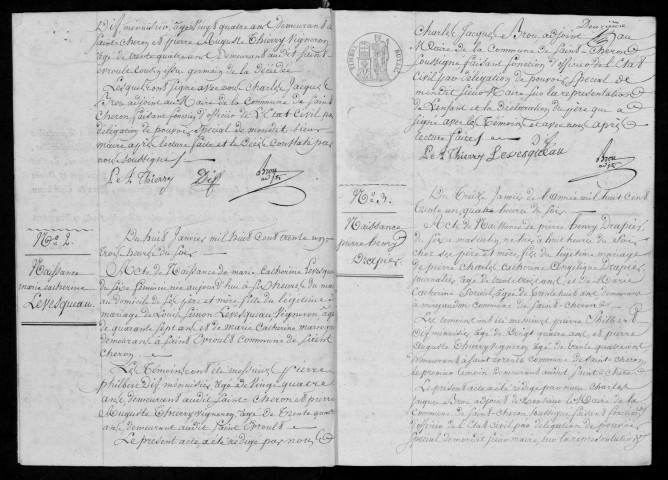 Dif menuisier, âgé de vingt quatre ans demeurant à
Saint Cheron et pierre Auguste Thierry vigneron
âgé de trente quatre ans demeurant audit Saint
Evroult cousin germain de la
Lesquels ont signé avec nous Charles Jacques
Brou adjoint au Maire de la Commune de Saint
Cheron faisant fonction d'officier de l'Etat Civil par
délégation de pouvoir spécial de mondit sieur
maire après lecture faite et le Décès Constaté par
nous soussignés
Le A Thierry Dif Brou adjt
No. 2.
Naissance
marie catherine
Levesqueau.
Du huit Janvier mil huit Cent trente un
trois heures du soir
Acte de Naissance de marie Catherine Levesqueau
du sexe féminin née aujourd'hui à heures du
au domicile de ses père et mère fille du légitime
mariage de Louis Simon Levesqueau vigneron, âgé
de quarante sept ans et de marie Catherine
demeurant à Saint Evroult commune de Saint
Cheron
Les Témoins ont été messieurs pierre
philbert Dif menuisier âgé de vingt quatre
ans demeurant audit Saint Cheron et pierre
Auguste Thierry vigneron, âgé de trente quatre
ans demeurant audit Saint Evroult
Le présent acte a été rédigé par nous
Deuxième
Charles Jacques Brou adjoint au
Maire de la Commune de Saint-Cheron
soussigné faisant fonction d'officier de l'Etat
Civil par délégation de pouvoir spécial de
mondit sieur Maire sur la représentation
de l'enfant et la déclaration du père qui a
signé avec les Témoins et avec nous après
lecture faite
Le A Thierry Levesqueau Dif
Brou adjt
No. 3.
Naissance
pierre henry
Drapier
Du Treize Janvier de l'année mil huit Cent
trente un, quatre heures du soir
Acte de Naissance de pierre henry Drapier
du sexe masculin, né hier à huit heures du soir
chez ses père et mère fils du légitime mariage
de pierre Charles Catherine Angélique Drapier
Journalier, âgé de trente ans et de Marie
Catherine âgée de trente huit ans demeurant
à Commune de Saint Cheron
Les Témoins ont été messieurs pierre Philbert
Dif menuisier, âgé de vingt quatre ans et pierre
Auguste Thierry vigneron, âgé de trente quatre ans
demeurant à Saint Evroult commune de Saint-Cheron
le premier témoin demeurant audit Saint Cheron
Le présent acte a été rédigé par nous Charles
Jacques Brou adjoint de Monsieur le Maire de la
Commune de Saint-Cheron soussigné faisant fonction
d'officier de l'Etat Civil par délégation de pouvoir
spécial de mondit sieur maire, sur la représentation